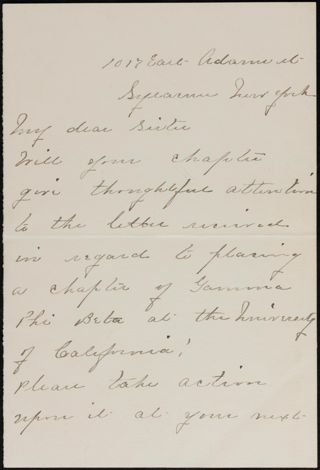 1017 East Adams st
Syracuse New York
My dear Sister
Will your chapter
give thoughtful attention
to the letter received
in regard to placing
a chapter of Gamma
Phi Beta at the University
of California!
Please take action
upon it at your next